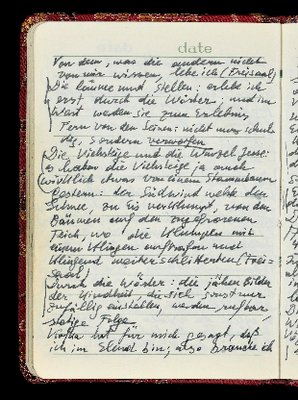 date
Von dem, was die anderen nicht
von mir wissen, lebe ich (Freisaal)
Die Räume und Stellen: erlebe ich
erst durch die Wörter; und im
Wort werden sie zum Erlebnis
Fern von den Leuten: nicht nur
, sondern verworfen
Die Viehsteige und die Wurzel Jesse:
so haben die Viehsteige ja auch
wirklich etwas von einem Stammbaum
Gestern: der Südwind wehte den
Schnee, zu Eis verklumpt, von den
Bäumen auf den zugefrorenen
Teich, wo die Klumpen mit
einem Klingen auftrafen und
klingend weiterschlitterten (Frei-
saal)
Durch die Wörter: die jähen Bilder
der Kindheit, die sich sonst nur
zufällig einstellen, werden rufbar,
stetige Folge
Kafka hat für mich gesagt, daß
ich im Elend bin; also brauche ich